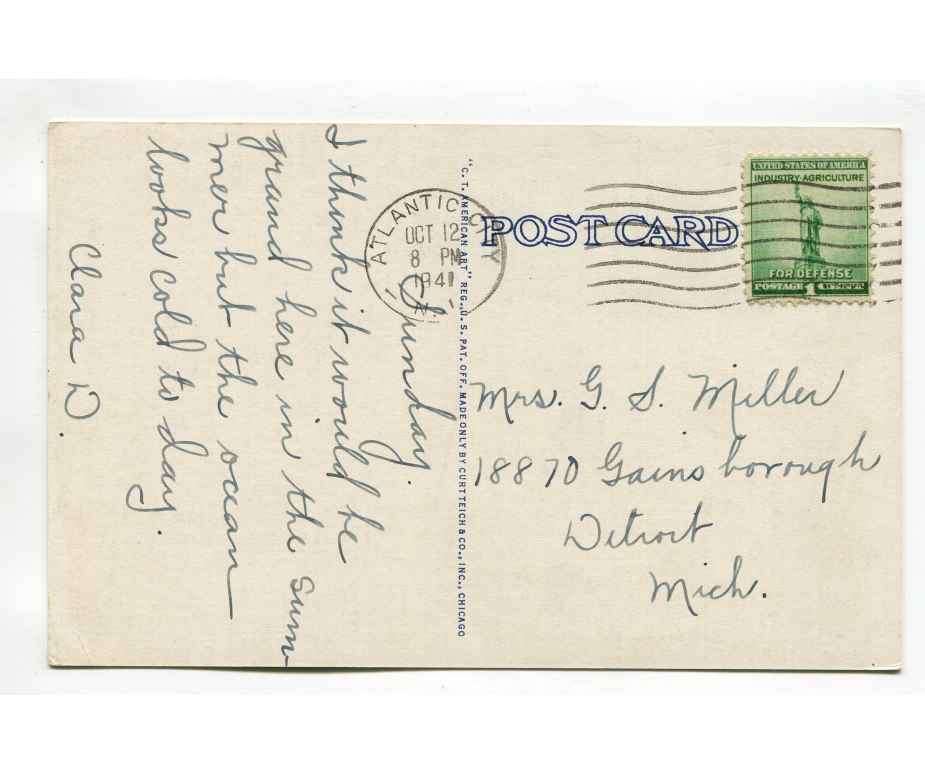 Sunday.
I think it would be
grand here in the Sum
mer but the ocean
looks cold to day.
Clara D.
"C. T. AMERICAN ART" REG. U. S. PAT. OFF. MADE ONLY BY CURT TEICH & CO., INC., CHICAGO
POST CARD
ATLANTIC CITY
OCT 12
8 PM
1941
N.J.
UNITED STATES OF AMERICA
INDUSTRY-AGRICULTURE
FOR DEFENSE
POSTAGE 1
Mrs. G. S. Miller
18870 Gainsborough
Detroit
Mich.